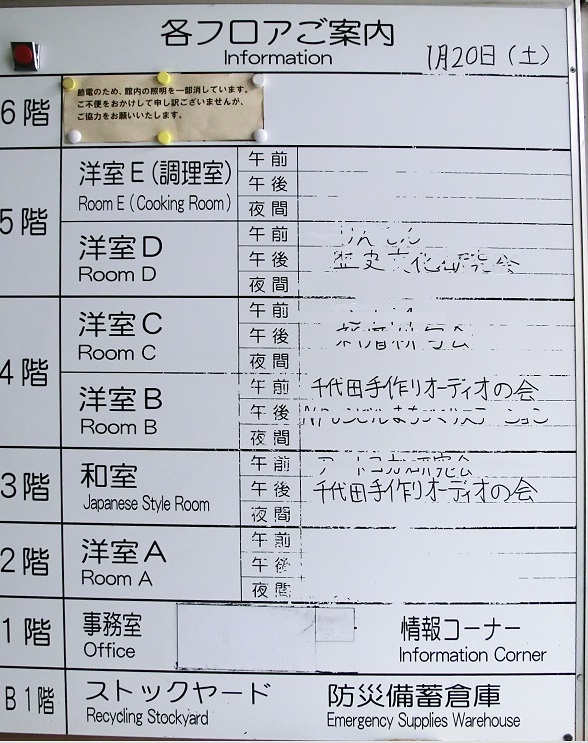 各フロアご案内
Information
1月20日（土）
6階
節電のため、館内の照明を一部消しています。
ご不便をおかけして申し訳ございませんが、
ご協力をお願いいたします。
5階
洋室E（調理室）
Room E (Cooking Room)
午前
午後
夜間
洋室D
Room D
午前
午後 歴史文化研究会
夜間
4階
洋室C
Room C
午前
午後
夜間
洋室B
Room B
午前 千代田手作りオーディオの会
午後
夜間
3階
和室
Japanese Style Room
午前
午後 千代田手作りオーディオの会
夜間
2階
洋室A
Room A
午前
午後
夜間
1階
事務室
Office
情報コーナー
Information Corner
B1階
ストックヤード
Recycling Stockyard
防災備蓄倉庫
Emergency Supplies Warehouse